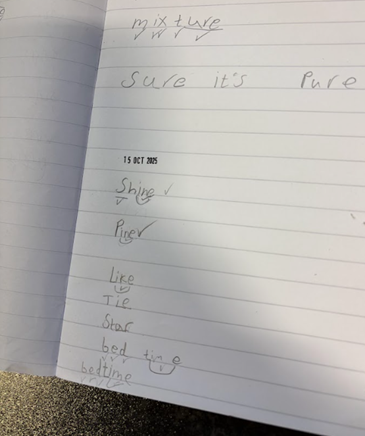 mixture
sure it's pure
15 OCT 2025
Shine
Pine
Like
Tie
Star
bed time
bedtime